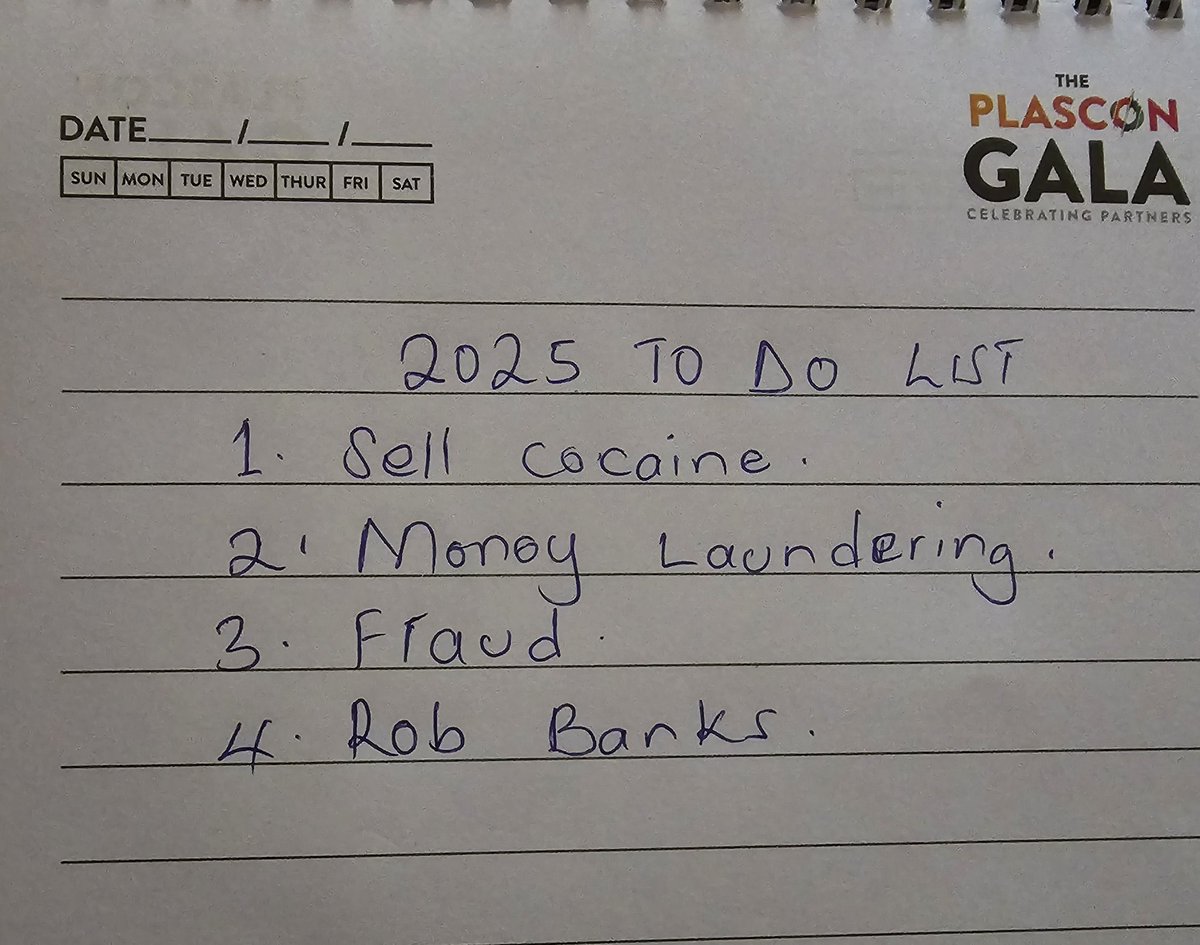 THE
PLASCON
GALA
CELEBRATING PARTNERS
DATE____/____/____
SUN MON TUE WED THUR FRI SAT
2025 TO DO LIST
1. Sell cocaine.
2. Money Laundering.
3. Fraud.
4. Rob Banks.